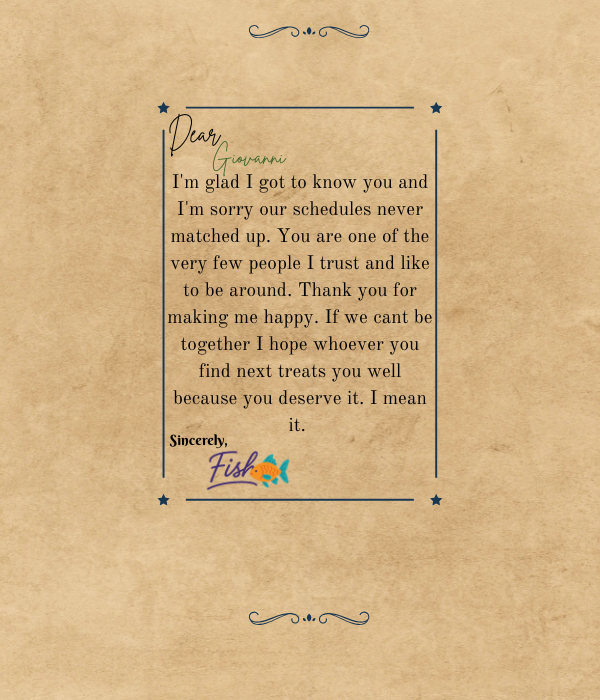 Dear
Giovanni
I'm glad I got to know you and
I'm sorry our schedules never
matched up. You are one of the
very few people I trust and like
to be around. Thank you for
making me happy. If we cant be
together I hope whoever you
find next treats you well
because you deserve it. I mean
it.
Sincerely,
Fish